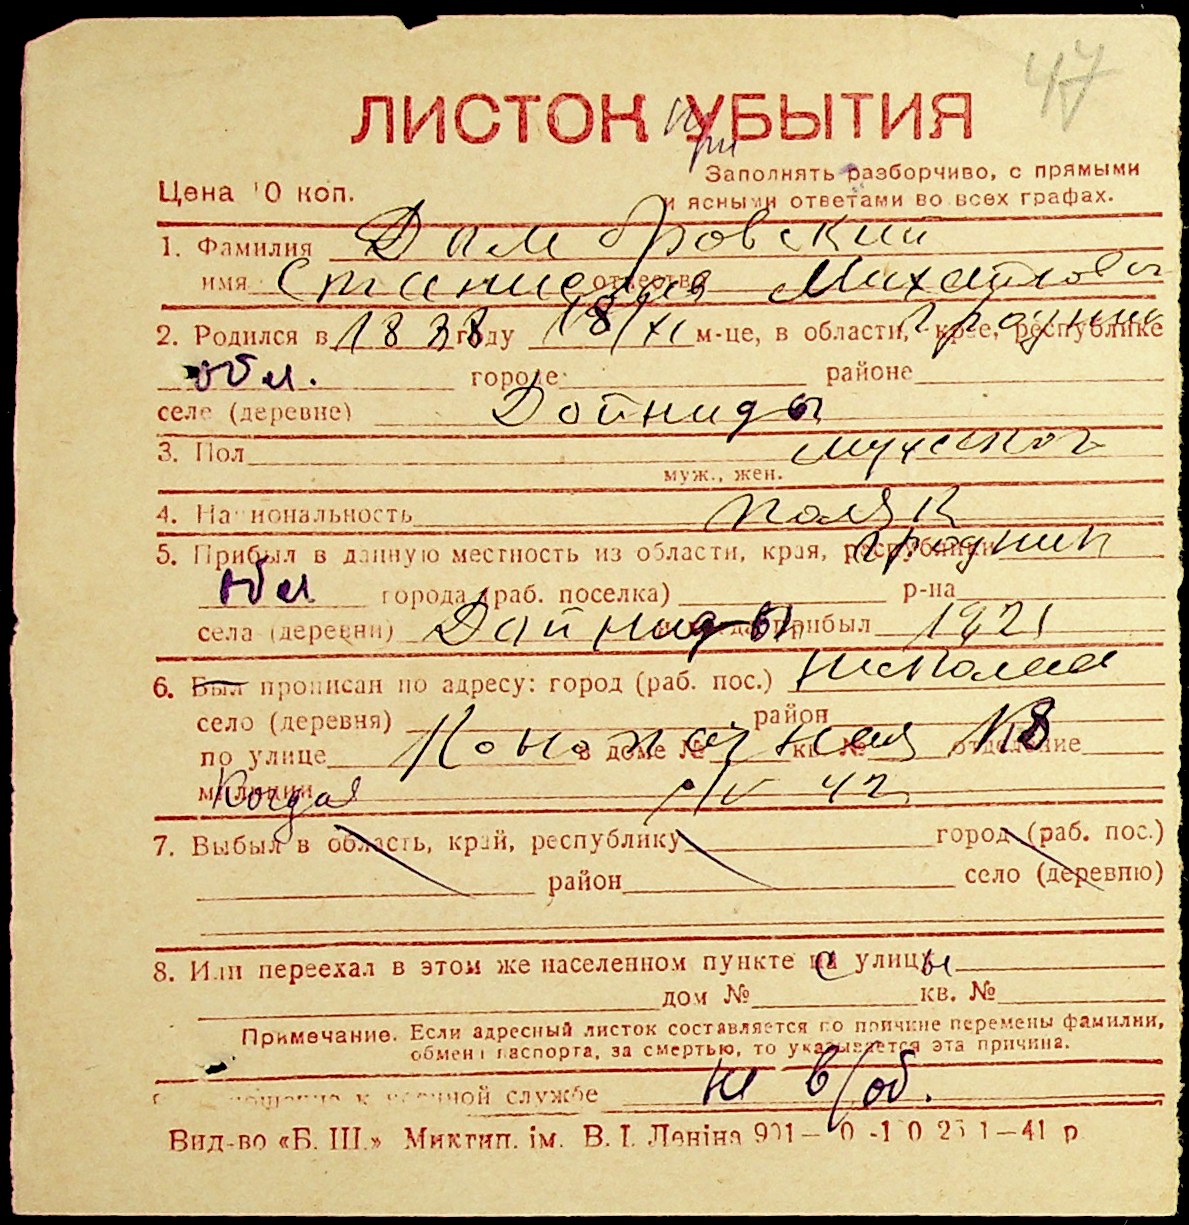 47
ЛИСТОК УБЫТИЯ
при
Цена 10 коп.
Заполнять разборчиво, с прямыми
и ясными ответами во всех графах.
1. Фамилия Домбровский
имя Станислав отчество Михайлович
2. Родился в году 18/XI м-це, в области, крае, республике Гроднин
обл. городе районе
селе (деревне) Дойниды
3. Пол мужской
муж., жен.
4. Национальность поляк
5. Прибыл в данную местность из области, края, республики Гроднин
обл города (раб. поселка) р-на
села (деревни) Дойниды прибыл 1921
6. Был прописан по адресу: город (раб. пос.)
село (деревня) район
по улице в доме № кв. № отделение 18
милиции Когда /V 42
7. Выбыл в область, край, республику город (раб. пос.)
район село (деревню)
8. Или переехал в этом же населенном пункте с улицы
дом № кв. №
Примечание. Если адресный листок составляется по причине перемены фамилии,
обмена паспорта, за смертью, то указывается эта причина.
отношение к военной службе не в/об.
Вид-во «Б. Ш.» Миктип. ім. В. І. Леніна